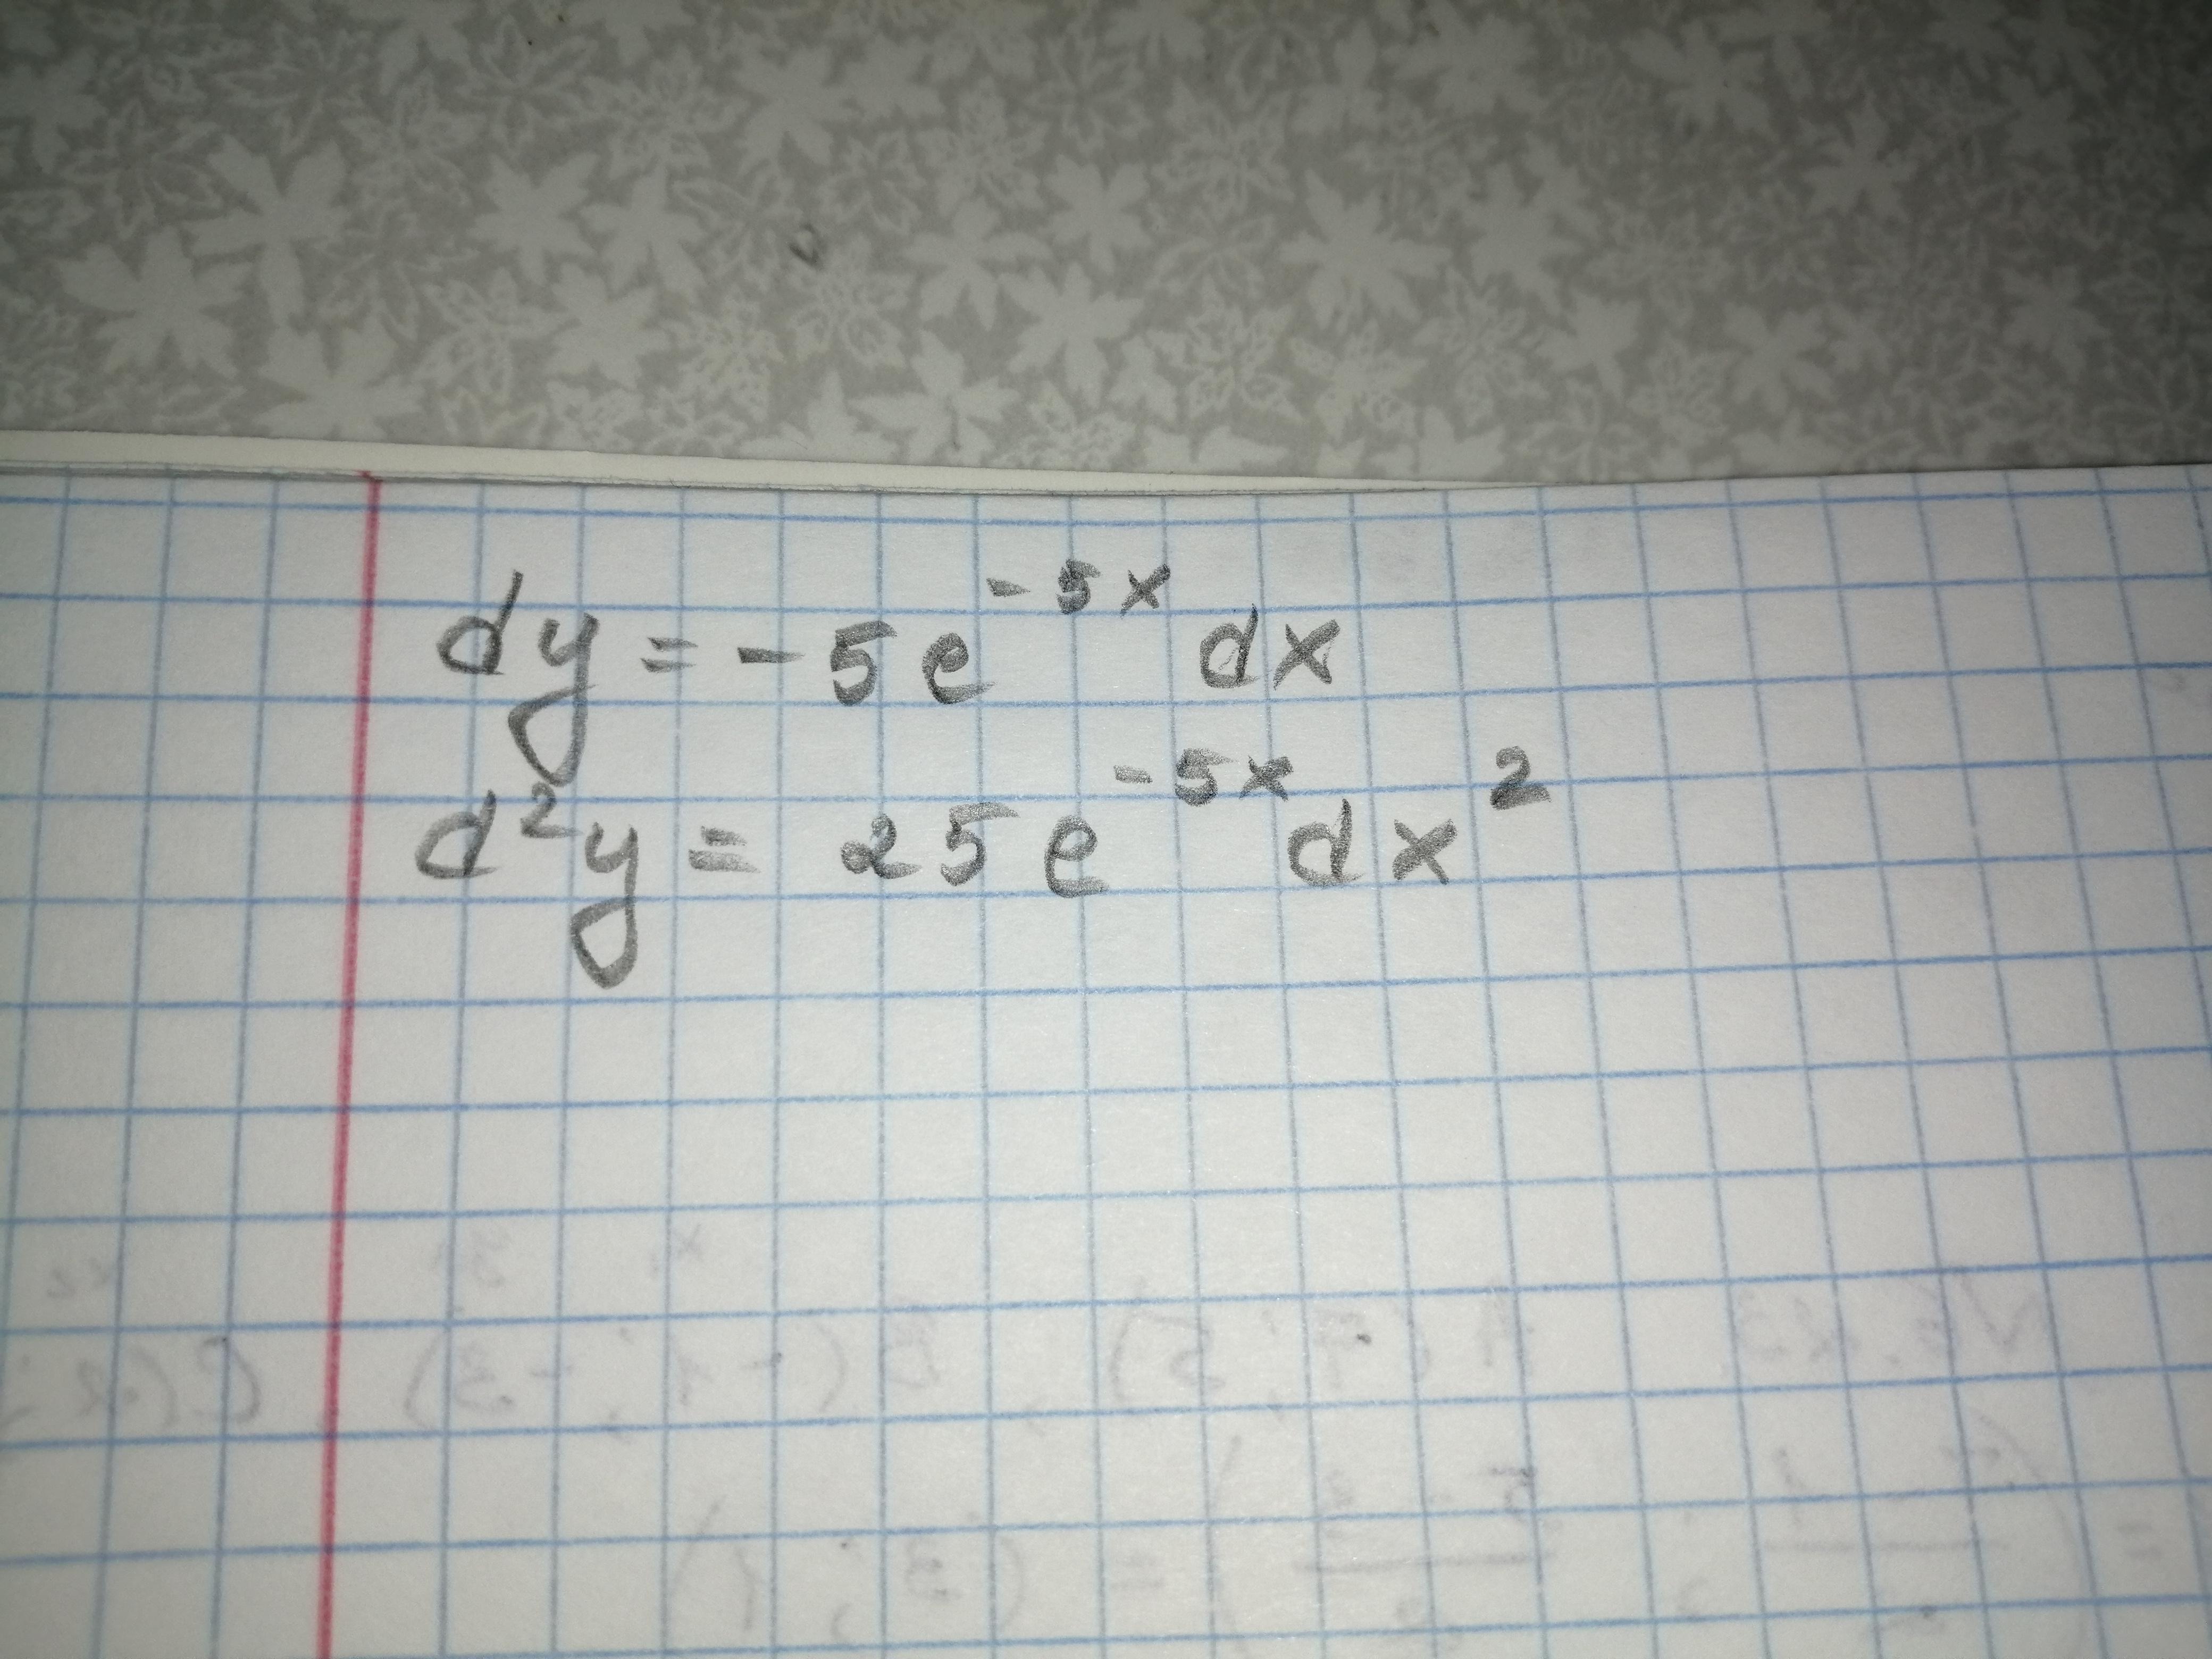 dy = -5e^{-5x} dx
d²y = 25e^{-5x} dx²